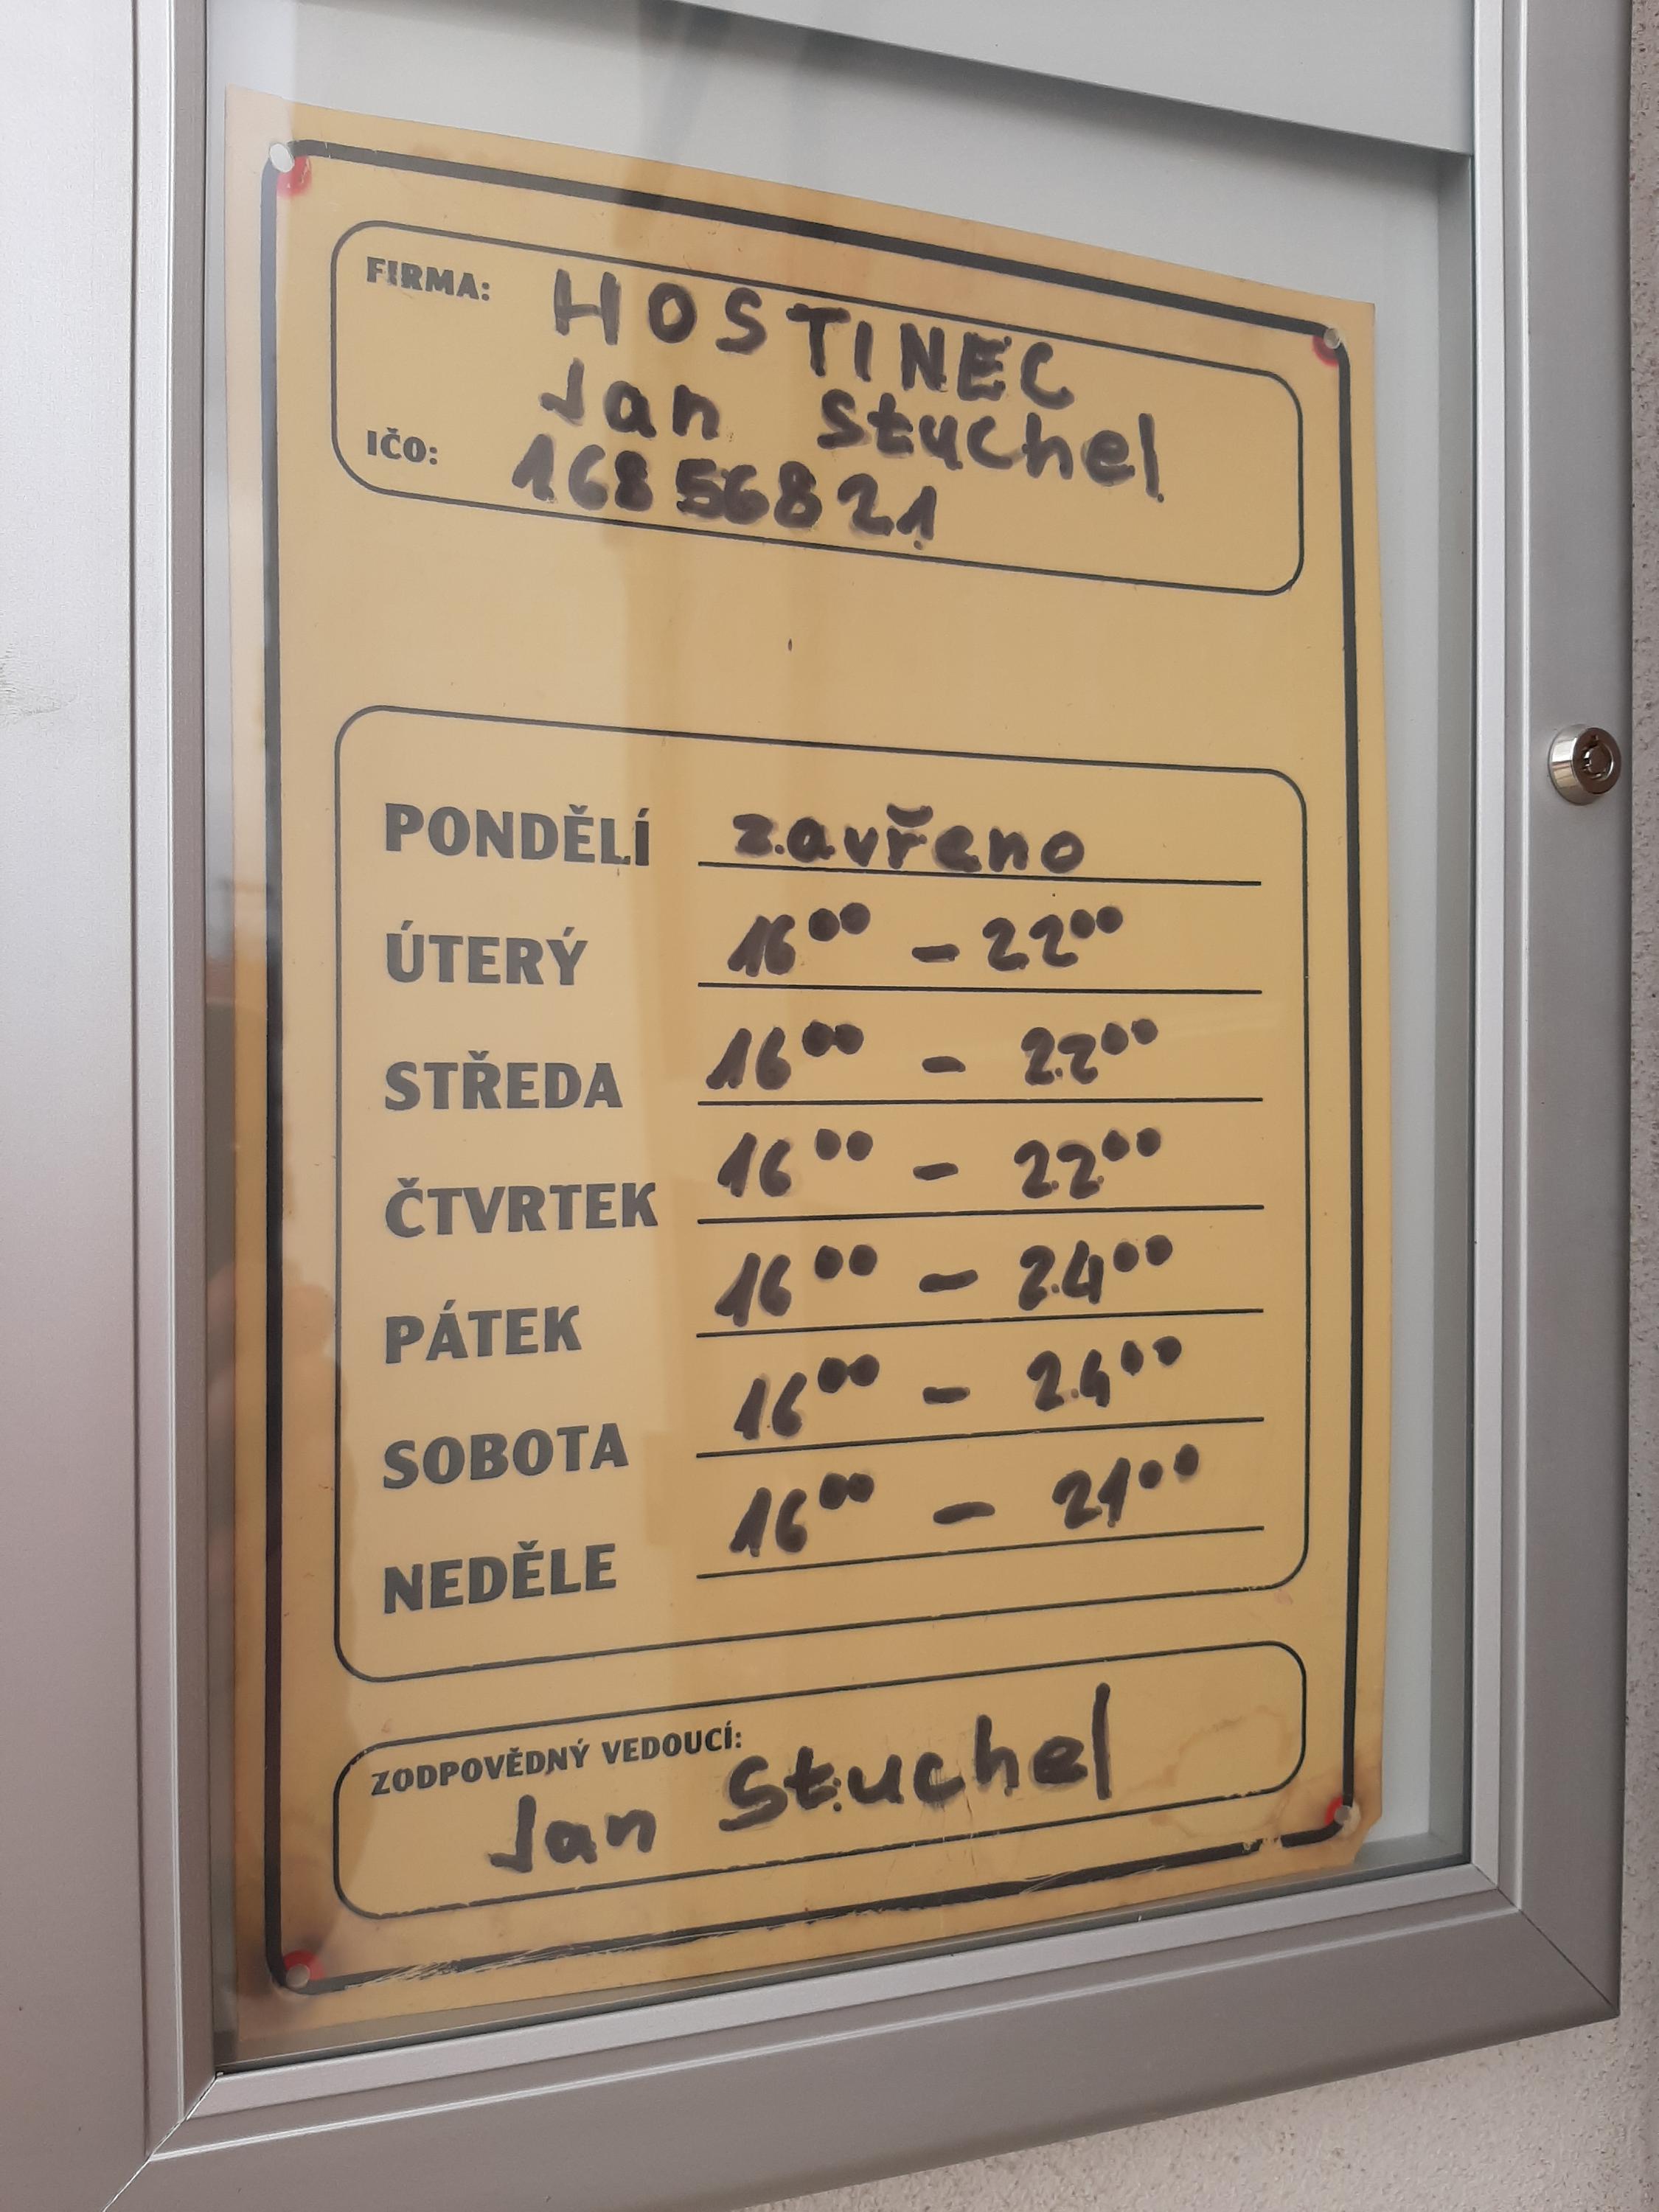 FIRMA: HOSTINEC
Jan Stuchel
IČO: 16856821
PONDĚLÍ zavřeno
ÚTERÝ 16⁰⁰ - 22⁰⁰
STŘEDA 16⁰⁰ - 22⁰⁰
ČTVRTEK 16⁰⁰ - 22⁰⁰
PÁTEK 16⁰⁰ - 24⁰⁰
SOBOTA 16⁰⁰ - 24⁰⁰
NEDĚLE 16⁰⁰ - 21⁰⁰
ZODPOVĚDNÝ VEDOUCÍ:
Jan Stuchel